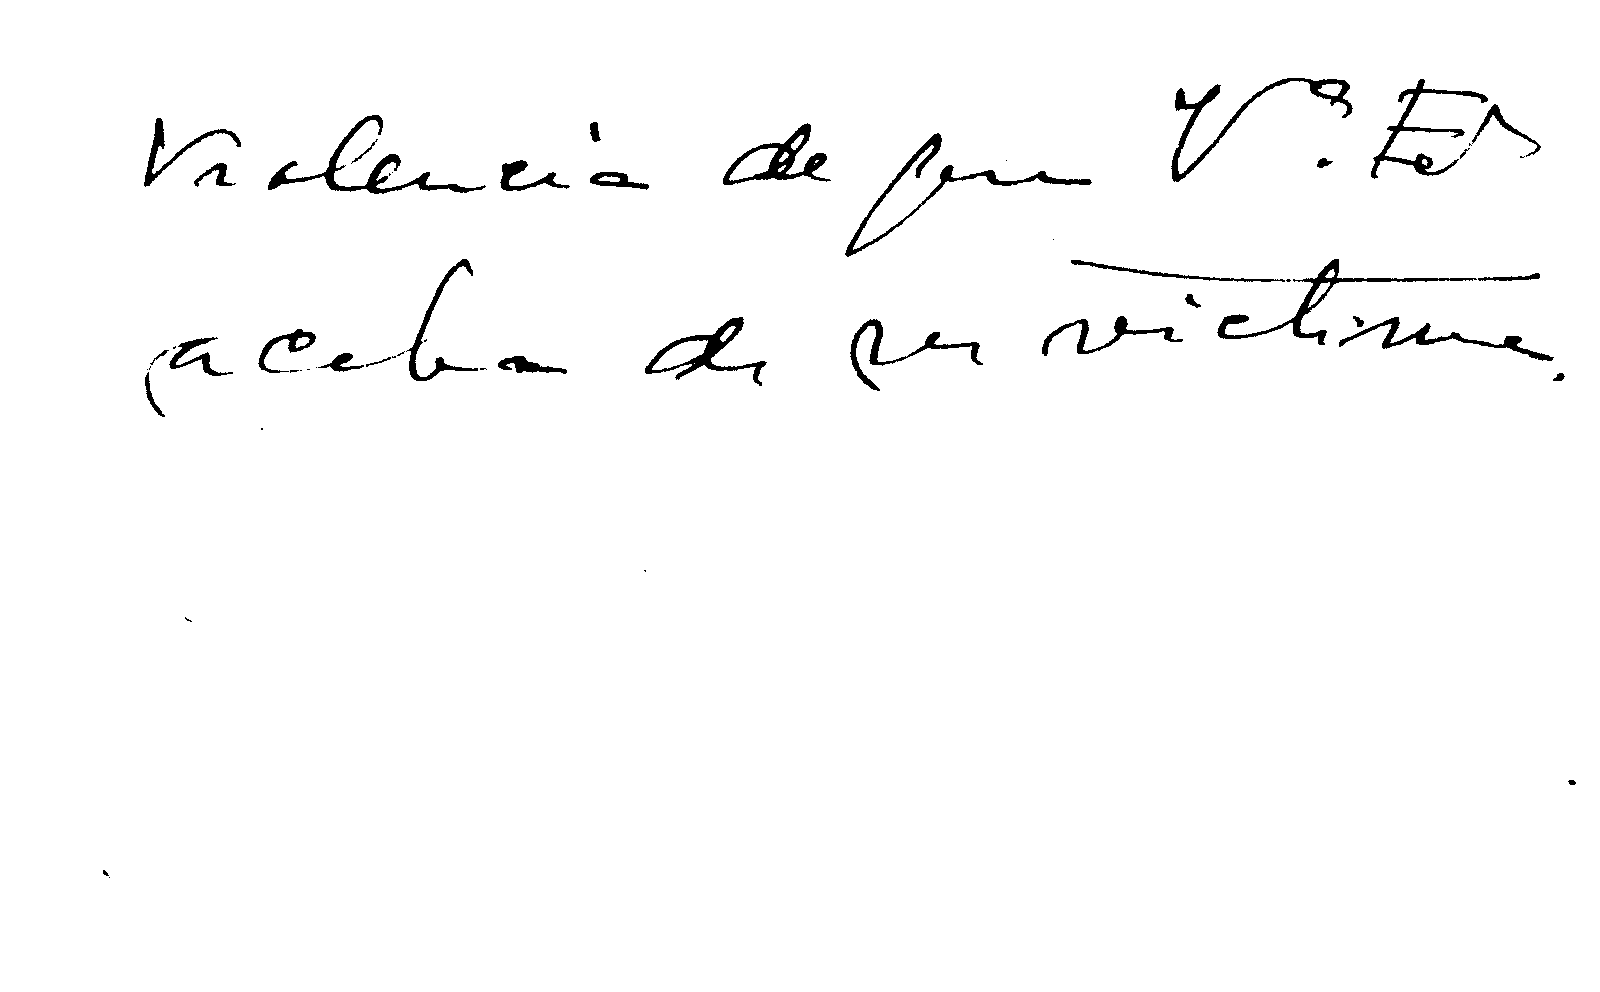 Violencia de que V.ª Ed
acaba de ser victima.